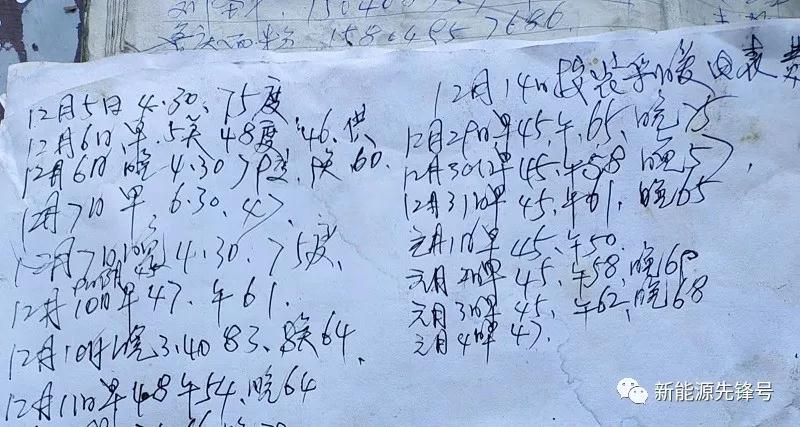 15848957686
12月5日 4.30、75度
12月6日早 5关 48度 46.供
12月6日 晚 4.30 79度、换 60.
12月7日早 6.30、47、
12月7日晚 4.30、75度、
12月10日早47、午61.
12月10日晚3.40 83、换64、
12月11日早48午54、晚64
12月14日按装采暖电表
12月29日早45、午65、晚75
12月30日早45、午58 晚57、
12月31日早45、午61、晚65
元月1日早45、午50
元月2日早45、午58、晚60
元月3日早45、午62、晚68
元月4日早47.
新能源先锋号